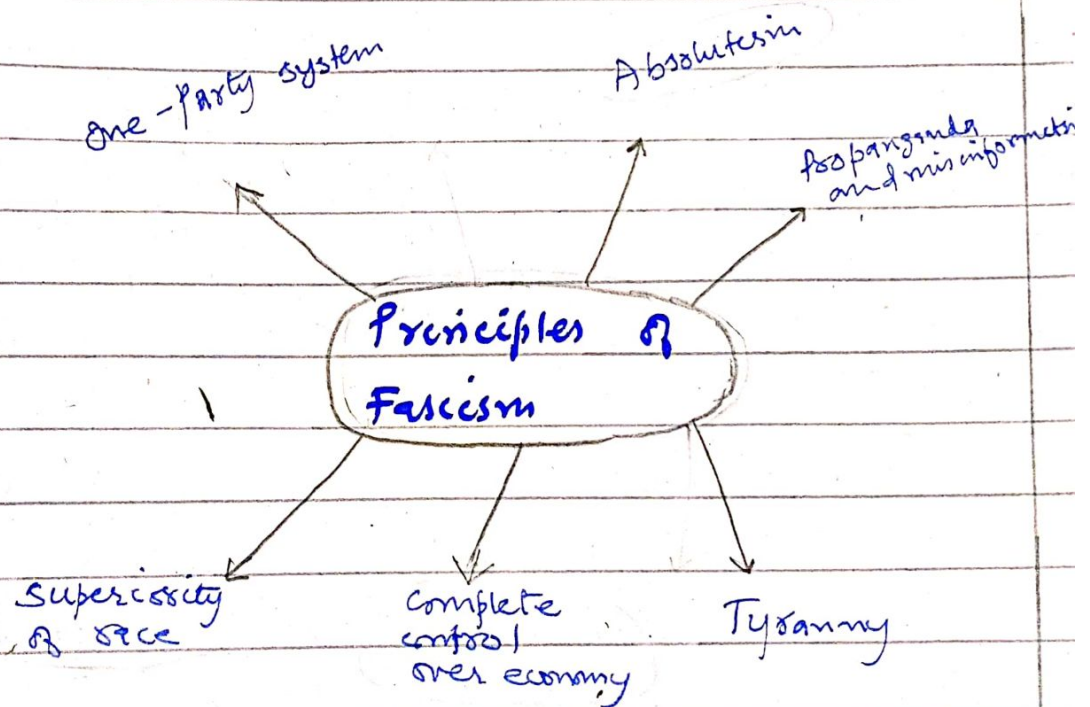 One-Party system
Absolutesim
Propanganda
and misinformati
Principles of
Fascism
Superiority
of race
Complete
control
over economy
Tyranny